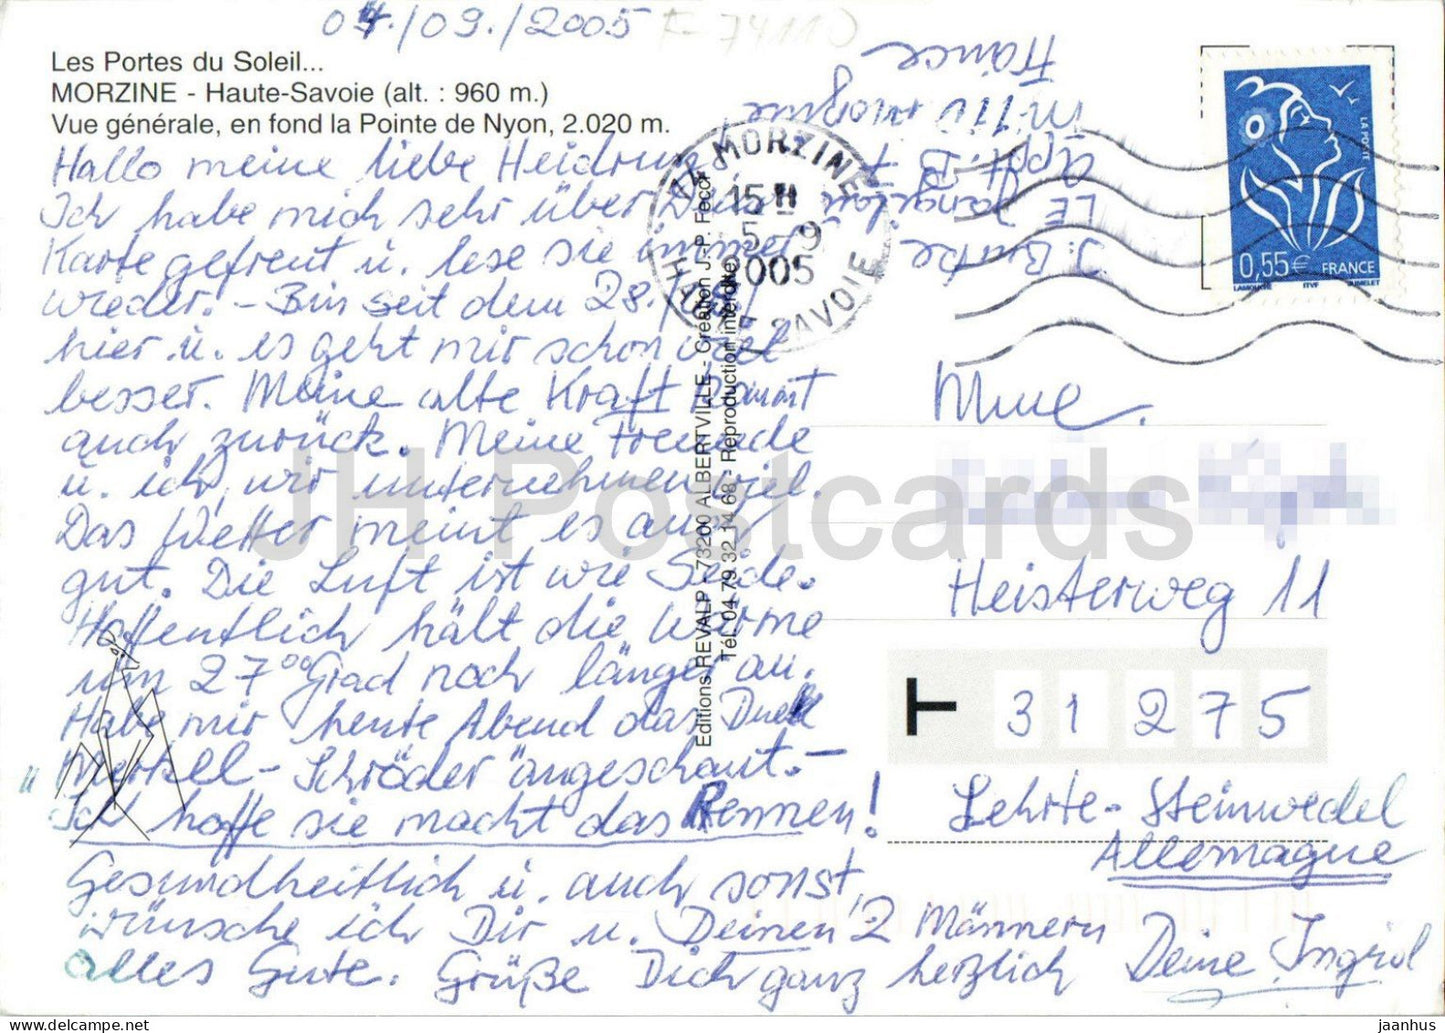 04./09./2005 F-74110
Les Portes du Soleil...
MORZINE - Haute-Savoie (alt. : 960 m.)
Vue générale, en fond la Pointe de Nyon, 2.020 m.
Hallo meine liebe Heidrun!
Ich habe mich sehr über Deine
Karte gefreut u. lese sie immer
wieder. - Bin seit dem 28./08.
hier u. es geht mir schon viel
besser. Meine alte Kraft kommt
auch zurück. Meine Freunde
u. ich, wir unternehmen viel.
Das Wetter meint es auch
gut. Die Luft ist wie Seide.
Hoffentlich hält die Wärme
um 27°° Grad noch länger an.
Habe mir heute Abend das Duell
"Merkel - Schröder" angeschaut. -
Ich hoffe sie macht das Rennen!
Gesundheitlich u. auch sonst,
wünsche ich Dir u. Deinen 2 Männern
alles Gute. Grüße Dich ganz herzlich Deine Ingrid
J. Burke
LE
Appt. B 7
Morzine
France
74 MORZINE
15 H
5 - 9
2005
HAUTE SAVOIE
LA POSTE
0,55€ FRANCE
LAMOUCHE ITVF JUMELET
Editions REVALP - 73200 ALBERTVILLE - Création J.-P. Feccr
Tél. 04 79 32 14 68 - Reproduction interdite
Mme.
Heisterweg 11
31275
Lehrte-Steinwedel
Allemagne
JH Postcards
https://www.delcampe.net
jaanhus